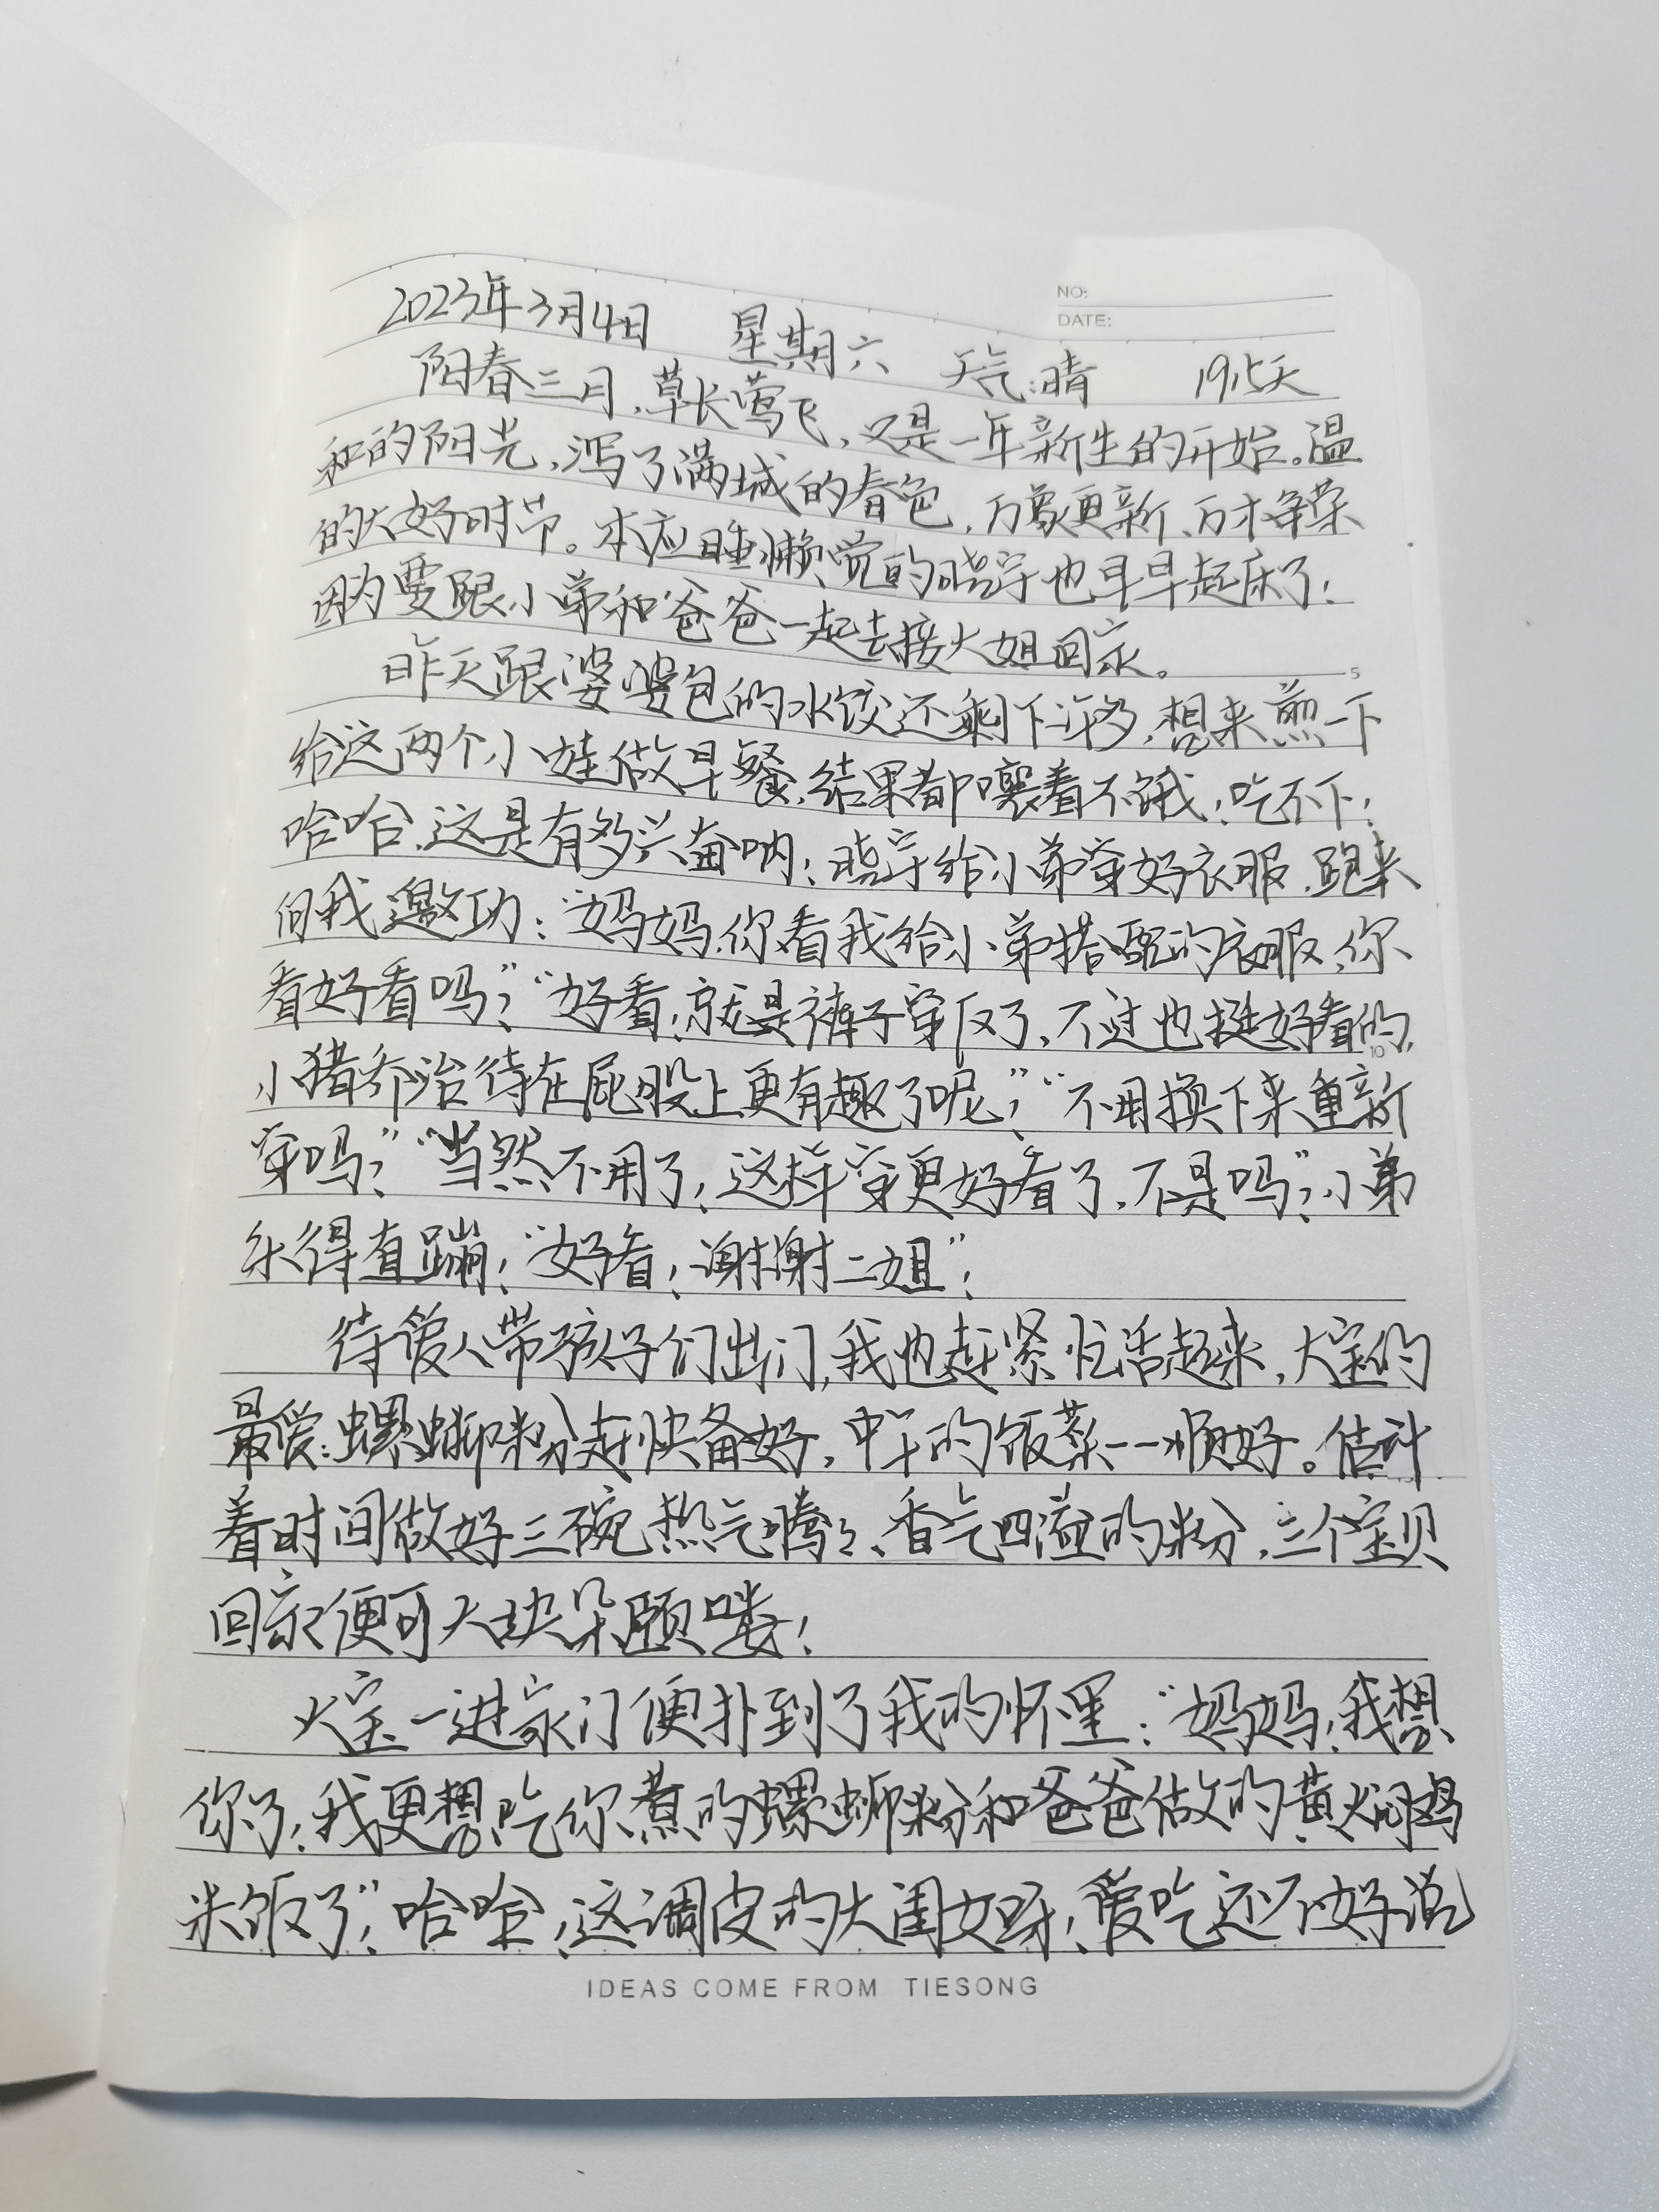 NO:
DATE:
2023年3月4日 星期六 天气:晴 19.5天
阳春三月,草长莺飞,又是一年新生的开始。温
和的阳光,泻了满城的春色,万象更新、万木争荣
的大好时节。本应睡懒觉的晓宇也早早起床了!
因为要跟小弟和爸爸一起去接大姐回家。
昨天跟婆婆包的水饺还剩下许多,想来煎一下
给这两个小娃做早餐,结果都嚷着不饿!吃不下!
哈哈,这是有多兴奋呐!晓宇给小弟穿好衣服,跑来
向我邀功:“妈妈,你看我给小弟搭配的衣服,你
看好看吗?”“好看!就是裤子穿反了,不过也挺好看的,
小猪乔治待在屁股上更有趣了呢?”“不用换下来重新
穿吗?”“当然不用了!这样穿更好看了,不是吗”?小弟
乐得直蹦!“好看!谢谢二姐”!
待爱人带孩子们出门,我也赶紧忙活起来,大宝的
最爱:螺蛳粉赶快备好,中午的饭菜一一顺好。估计
着时间做好三碗热气腾腾、香气四溢的粉,三个宝贝
回家便可大快朵颐喽!
大宝一进家门便扑到了我的怀里:“妈妈!我想
你了!我更想吃你煮的螺蛳粉和爸爸做的黄焖鸡
米饭了”!哈哈,这调皮的大闺女呀!爱吃还不好说
5
10
IDEAS COME FROM TIESONG